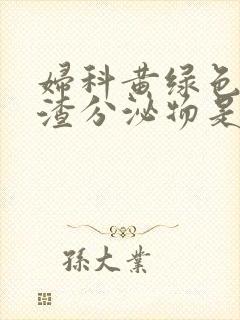 婦科黄绿色
渣分泌物是
孫大業